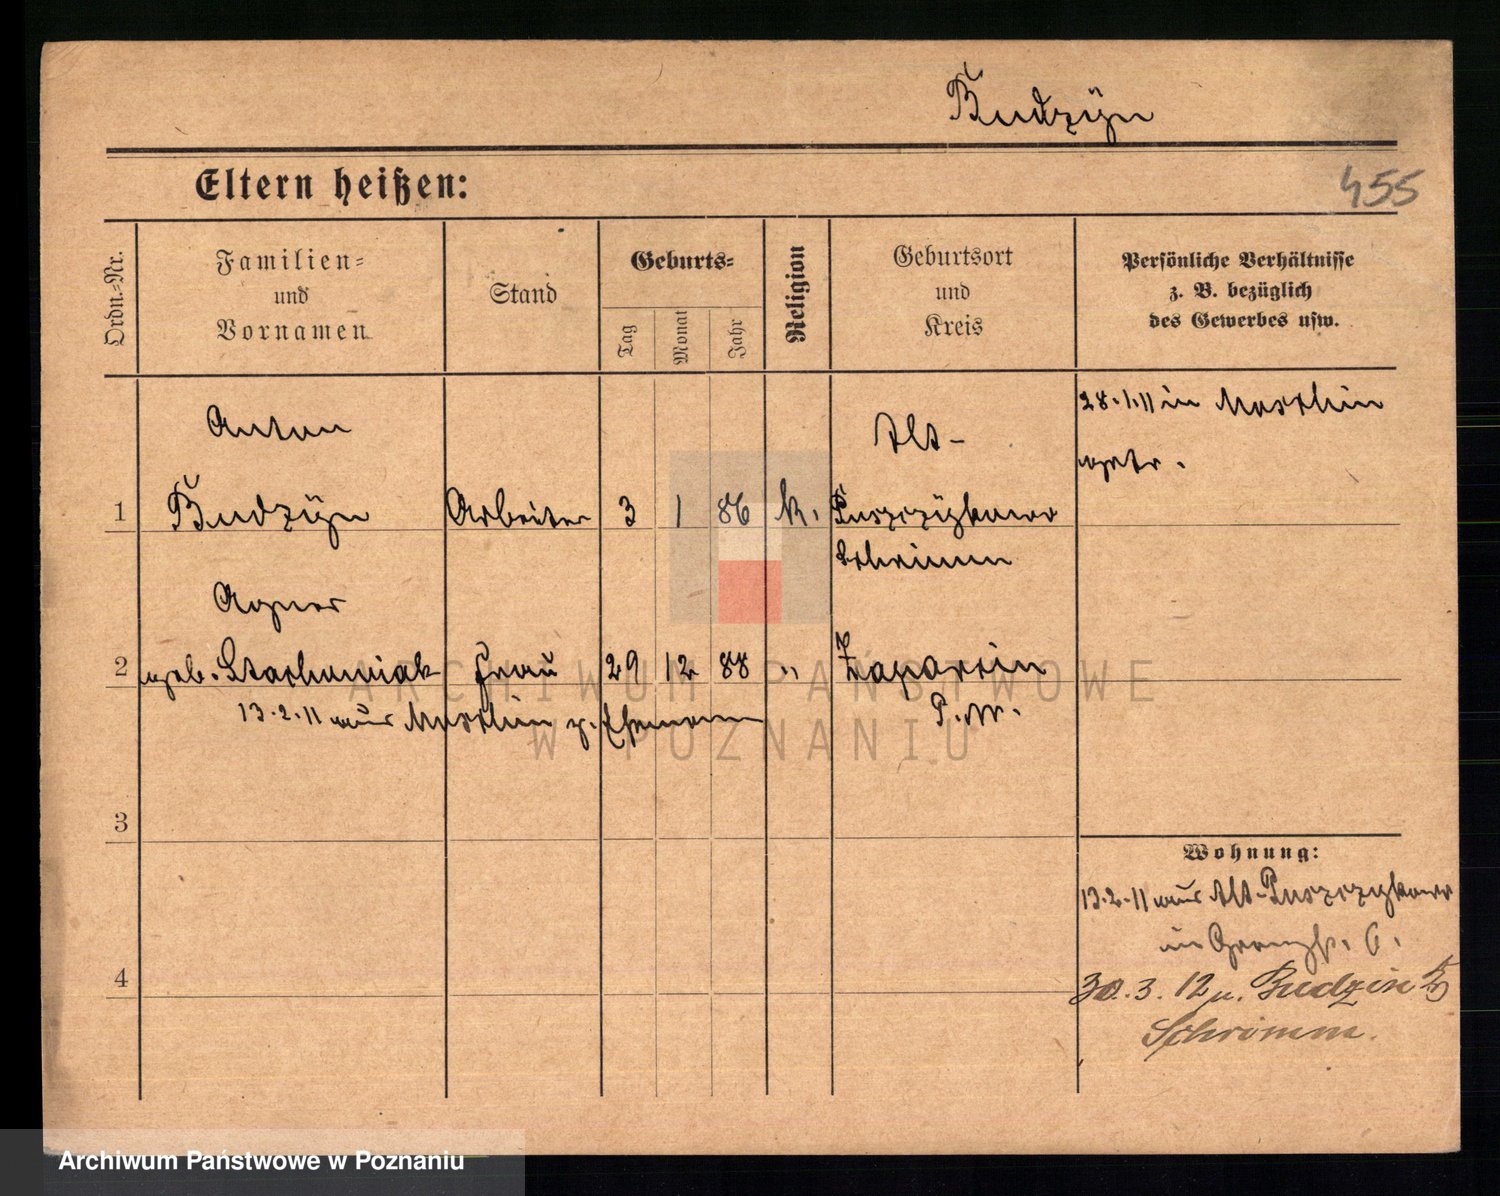 Budzyn
Eltern heißen:
455
Ordn.-Nr.
Familien-
und
Vornamen
Stand
Geburts-
Tag
Monat
Jahr
Religion
Geburtsort
und
Kreis
Persönliche Verhältnisse
z. B. bezüglich
des Gewerbes usw.
28.1.11 in Moschin
getr.
Anton
Alt-
1 Budzyn Arbeiter 3 1 86 k. Puszczykowo
Schrimm
Agnes
2 geb. Stachowiak Frau 29 12 88 " Zaparcin
13.2.11 aus Moschin z. Ehemann P.W.
3
Wohnung:
13.2.11 aus Alt-Puszczykowo
in 6.
4
30.3.12 n. Budzin
Schrimm.
ARCHIWUM PAŃSTWOWE
W POZNANIU
Archiwum Państwowe w Poznaniu